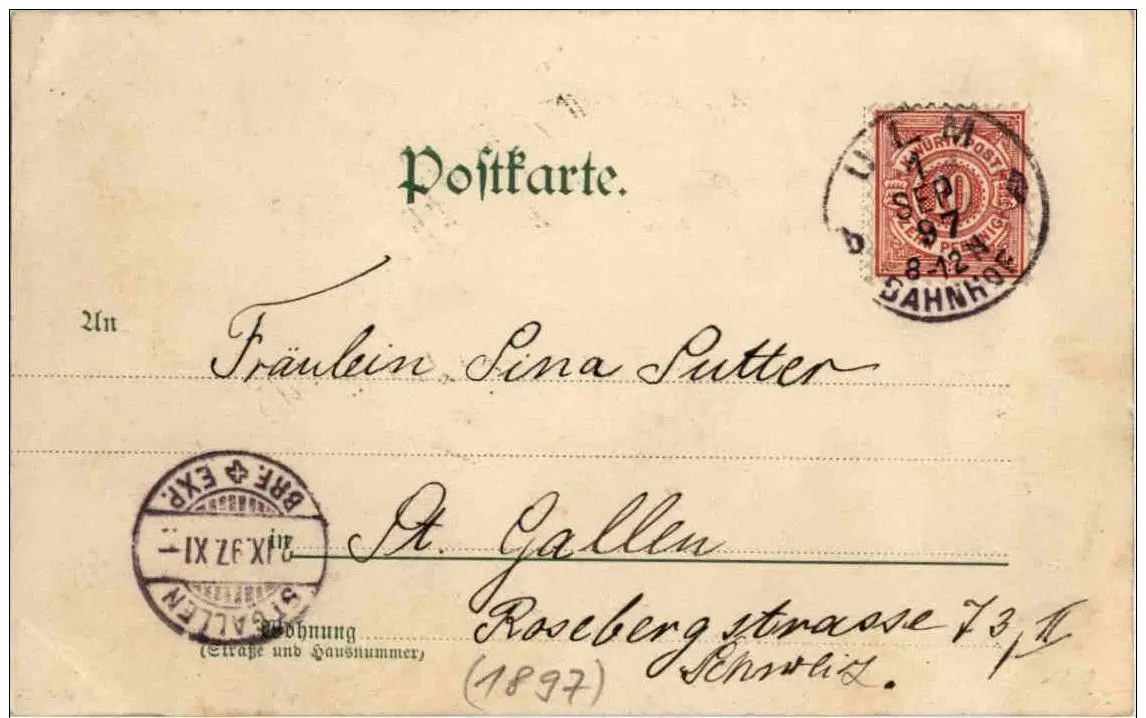 Postkarte.
ULM
1
SEP
97
8-12 N
BAHNHOF
WÜRTT. POST
10
ZEHN PFENNIG
An
Fräulein Lina Sutter
BRF. EXP.
IX.97.XI
ST. GALLEN
in
St. Gallen
Wohnung
(Straße und Hausnummer)
Rosebergstrasse 73, II
Schweiz.
(1897)